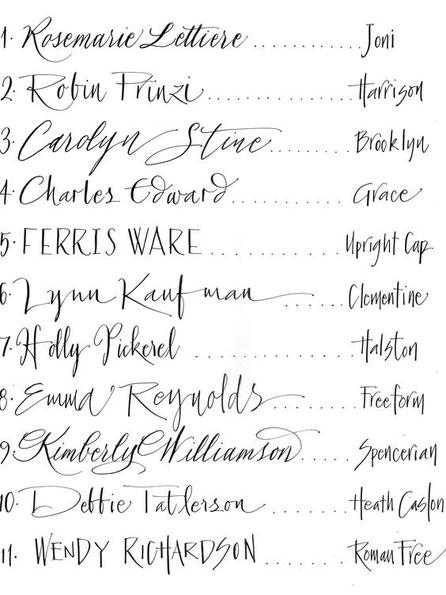 1. Rosemarie Lettiere ............ Joni
2. Robin Prinzi ................ Harrison
3. Carolyn Stine ......... Brooklyn
4. Charles Edward ............. Grace
5. FERRIS WARE ............ Upright Cap
6. Lynn Kaufman ...... Clementine
7. Holly Pickerel ............. Halston
8. Emma Reynolds ....... Freeform
9. Kimberly Williamson ..... Spencerian
10. Debbie Tatlerson .......... Heath Caslon
11. WENDY RICHARDSON ........ Roman Free